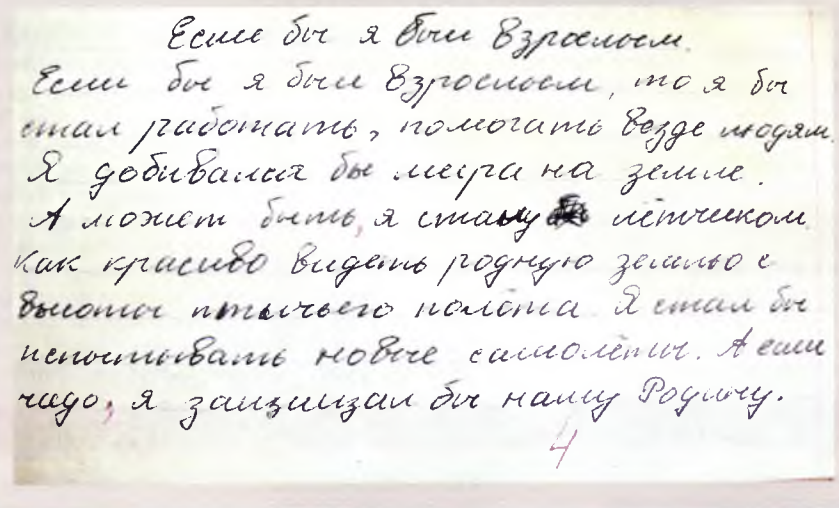 Если бы я был взрослым.
Если бы я был взрослым, то я бы
стал работать, помогать везде людям.
Я добивался бы мира на земле.
А может быть, я стану лётчиком.
Как красиво видеть родную землю с
высоты птичьего полёта. Я стал бы
испытывать новые самолёты. А если
надо, я защищал бы нашу Родину.
4